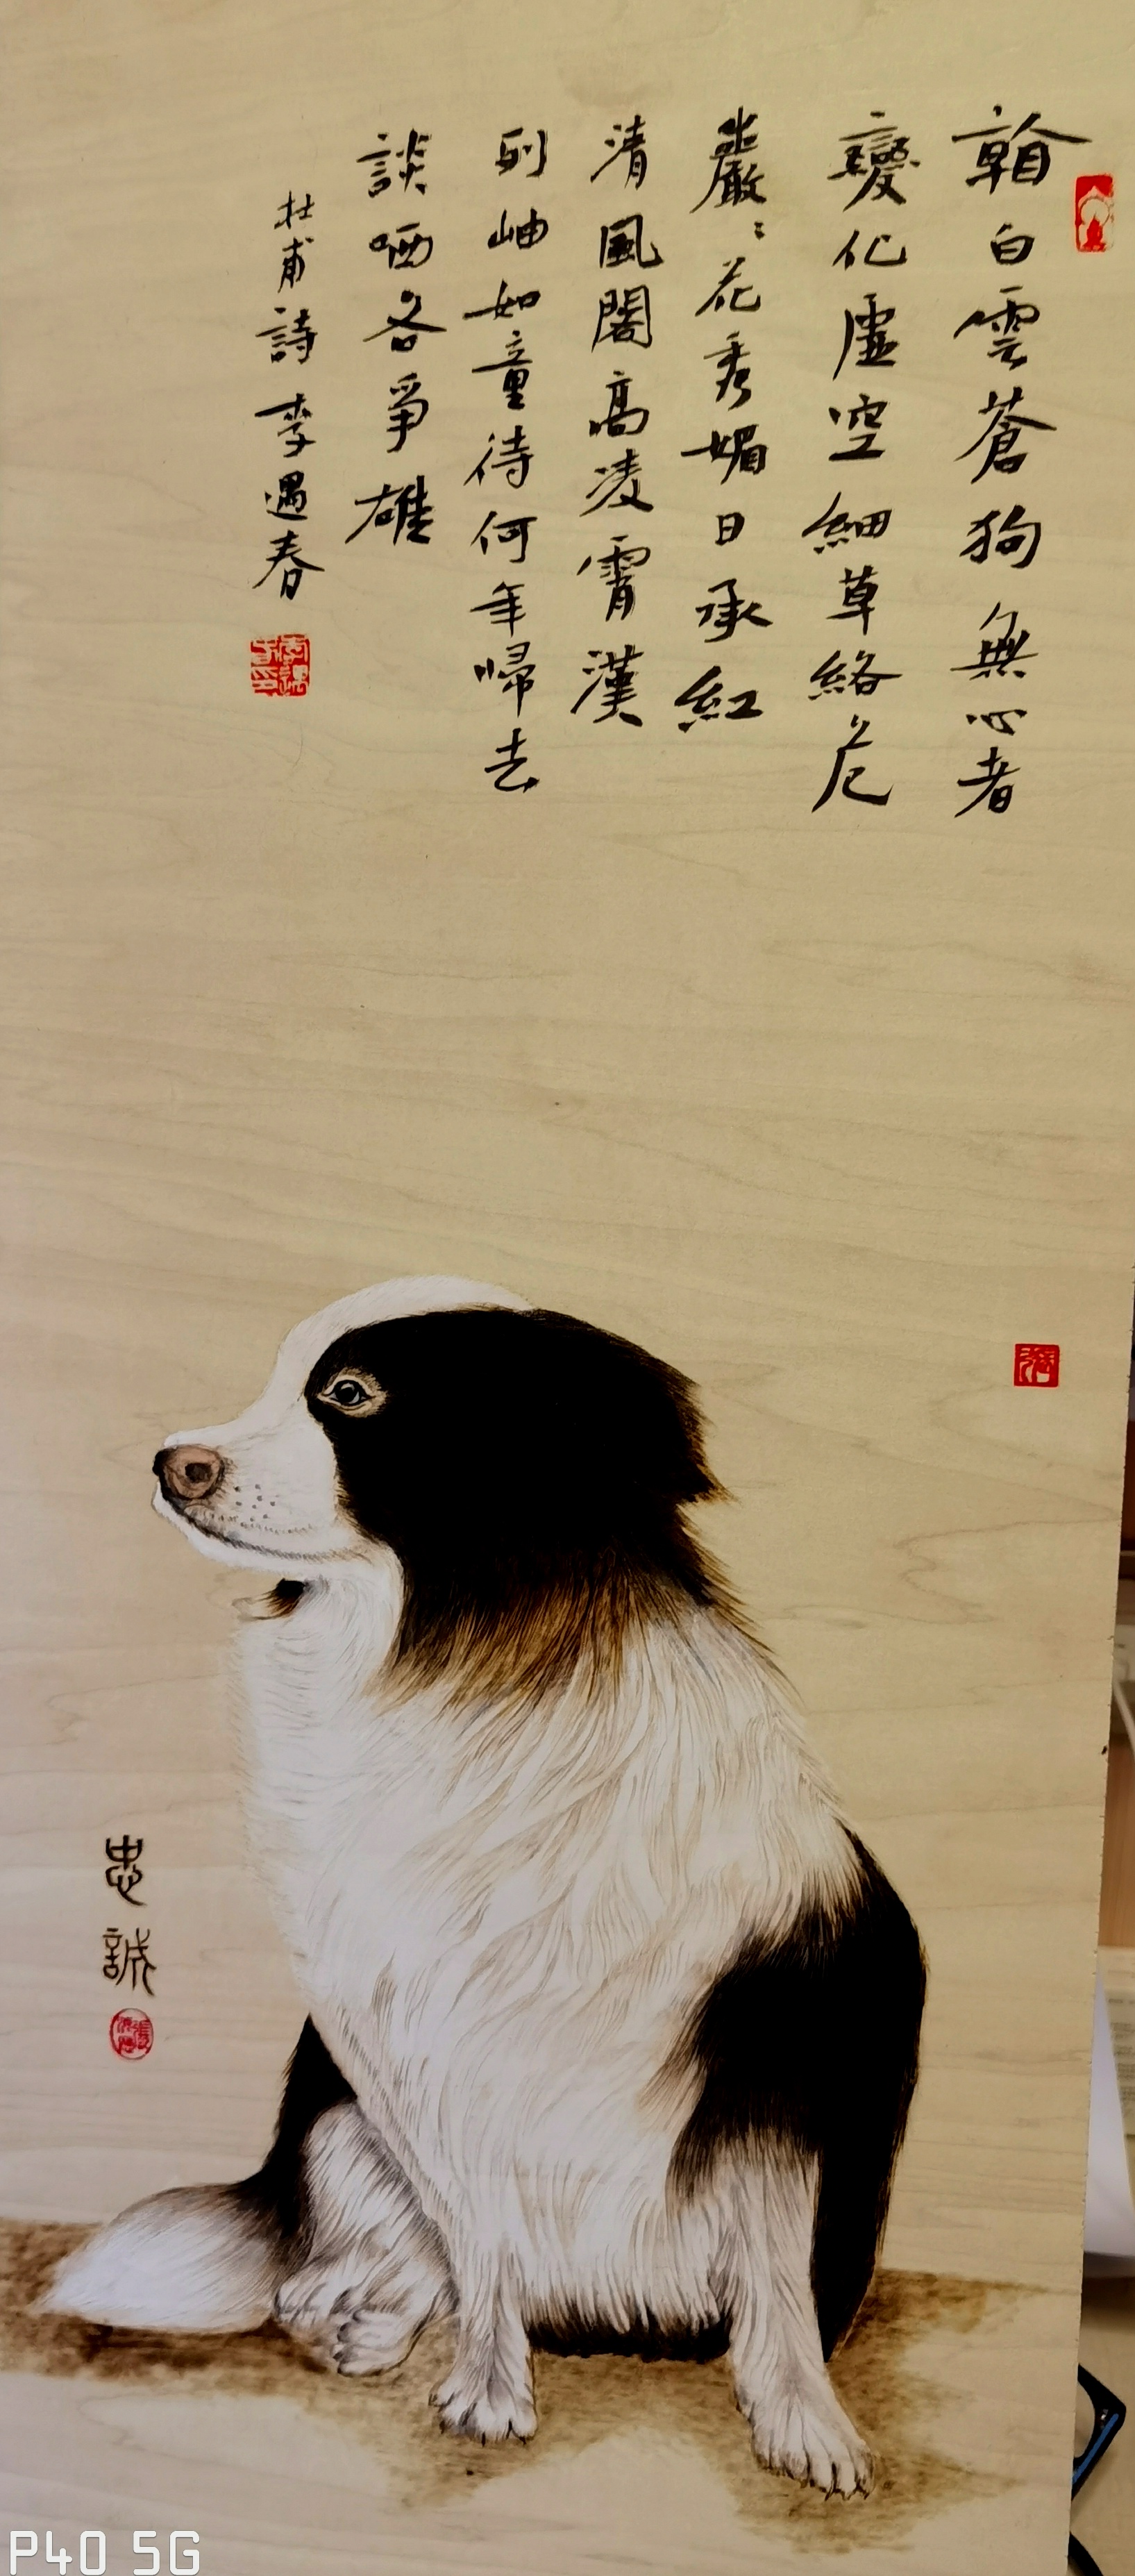 白雲蒼狗無心者
變化虛空細草絡危
巖〻花秀媚日承紅
清風閣高凌霄漢
列岫如童待何年歸去
談哂各爭雄
杜甫詩 李遇春
張
忠誠
P40 5G